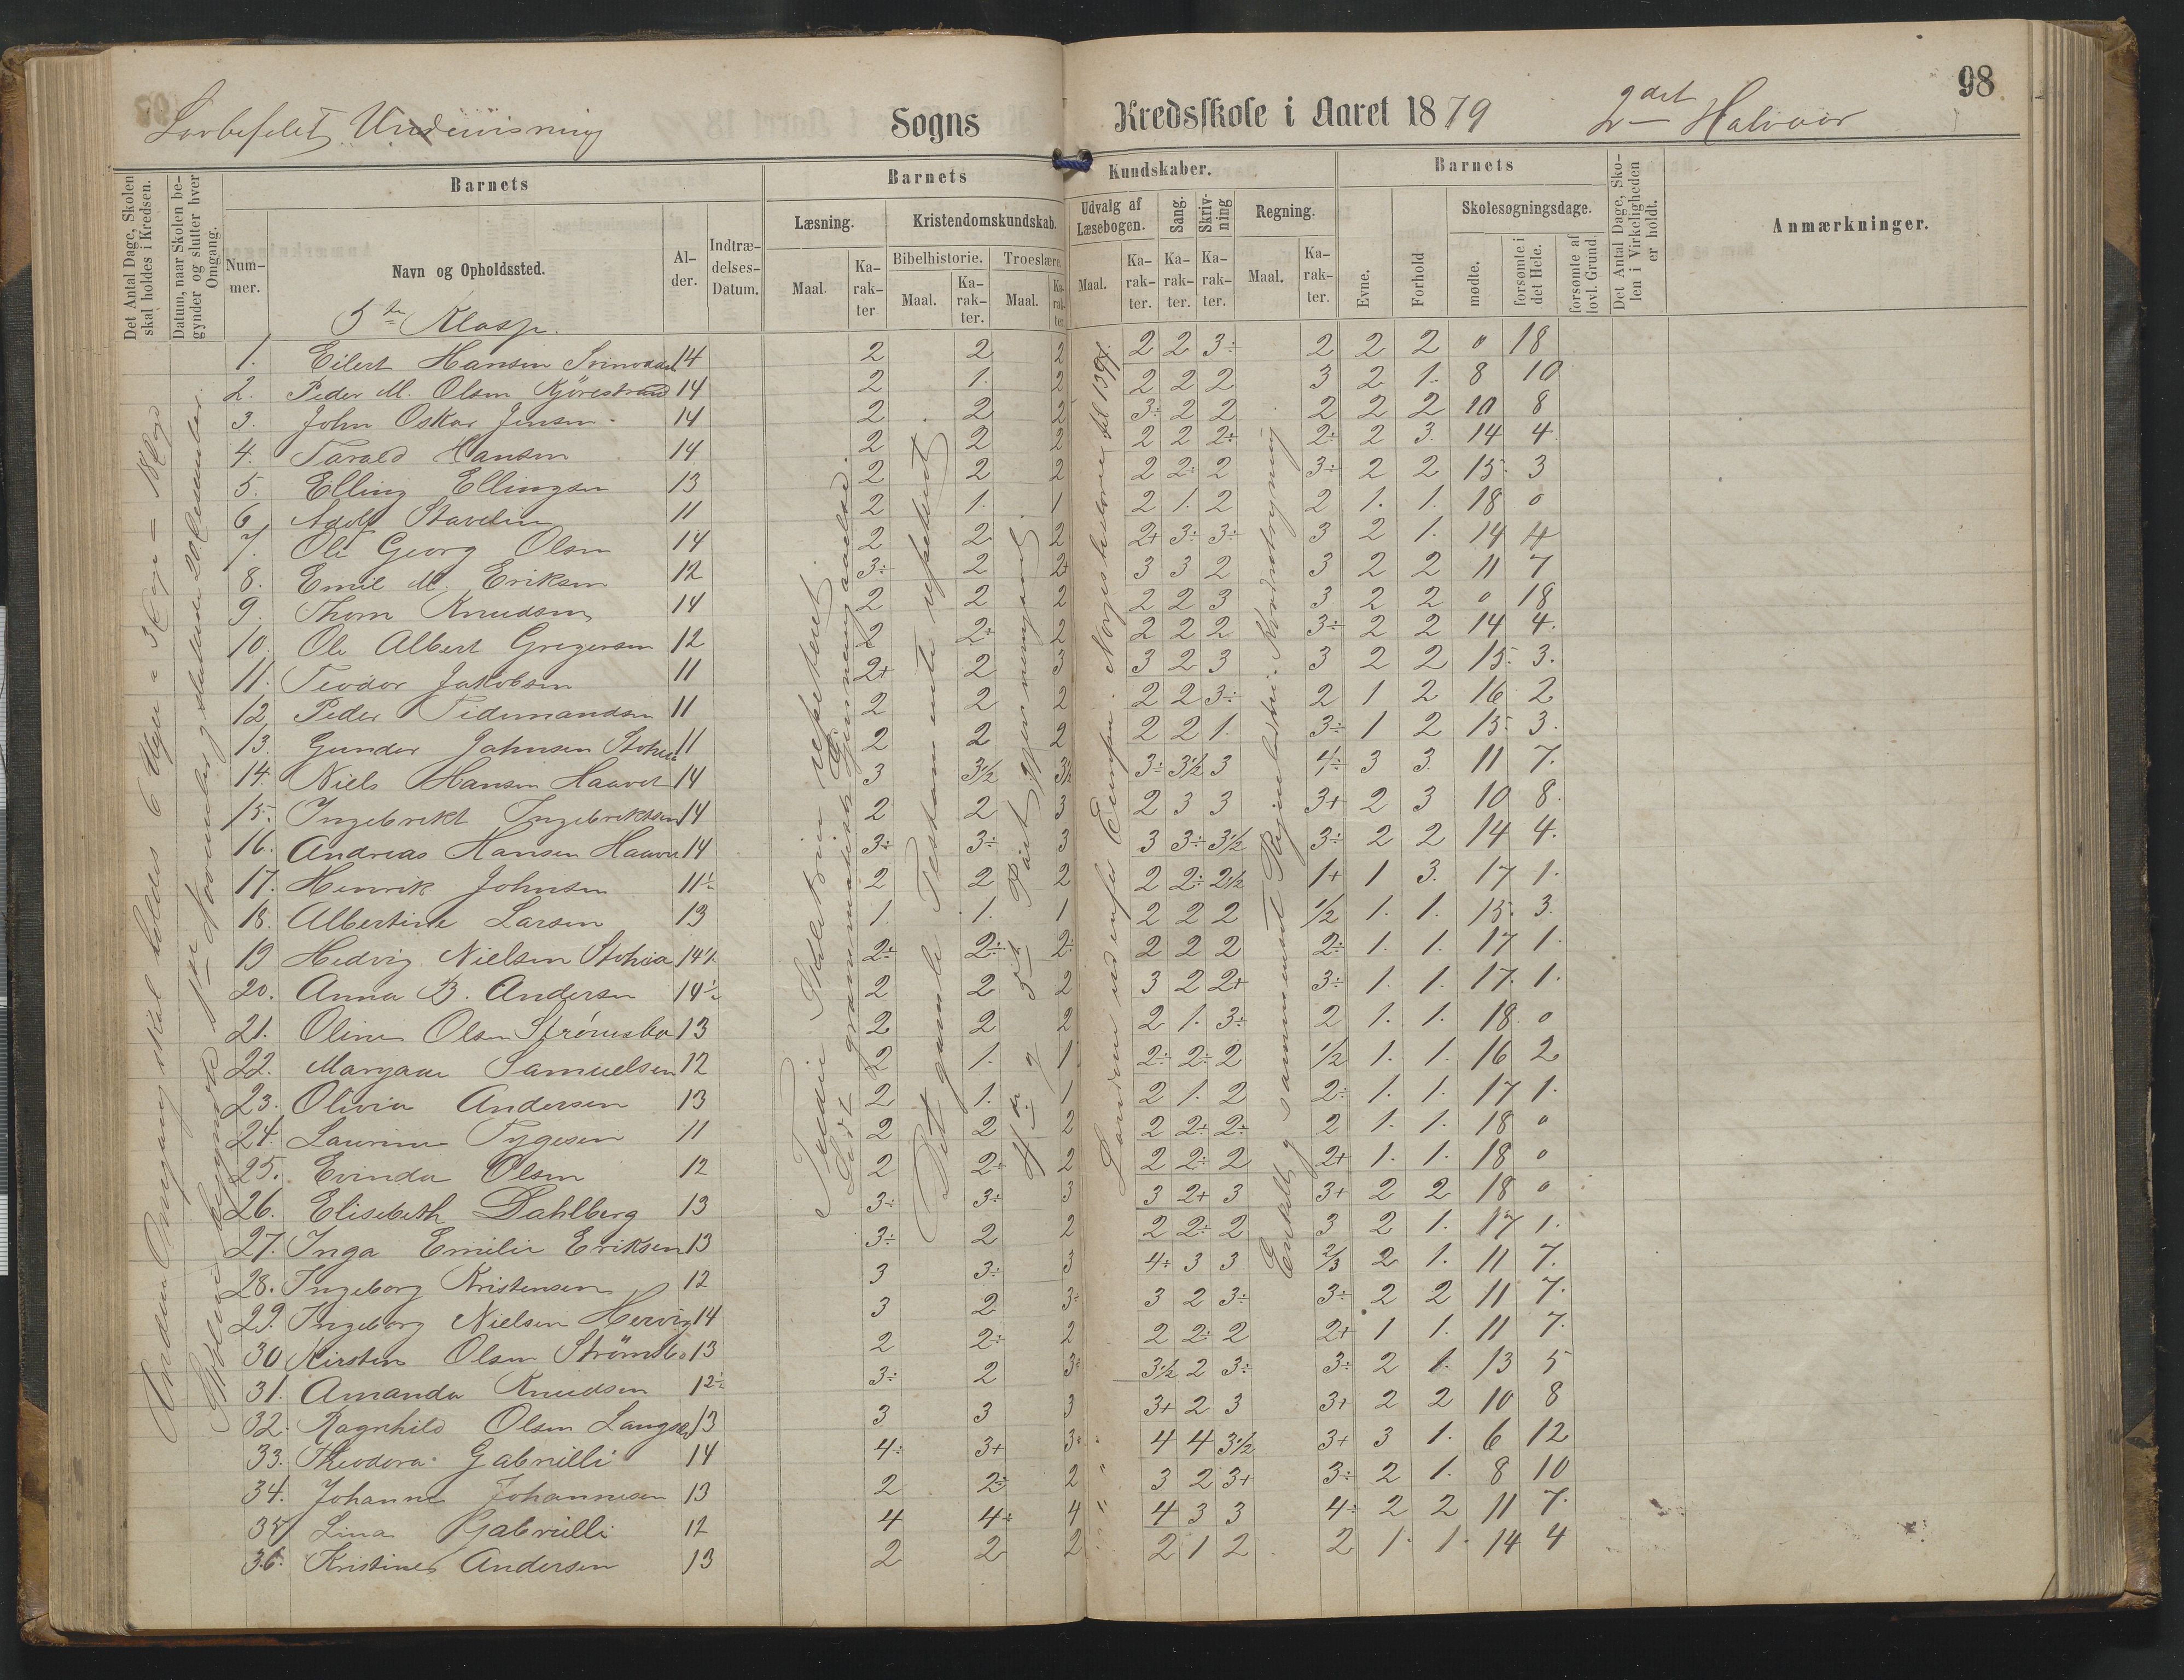 98
Lovbefalet Undervisning Sogns Kredsskole i Aaret 1879 2det Halvaar
Det Antal Dage, Skolen skal holdes i Kredsen.
Datum, naar Skolen begynder og slutter hver Omgang.
Barnets
Barnets Kundskaber.
Barnets
Det Antal Dage, Skolen i Virkeligheden er holdt.
Anmærkninger.
Nummer.
Navn og Opholdssted.
Alder.
Indtrædelses-Datum.
Læsning.
Kristendomskundskab.
Udvalg af Læsebogen.
Sang.
Skrivning
Regning.
Evne.
Forhold
Skolesøgningsdage.
Bibelhistorie.
Troeslære.
Maal. Karakter Maal. Karakter. Maal. Karakter Maal. Karakter. Karakter. Karakter. Maal. Karakter.
mødte.
forsømte i det Hele.
forsømte af lovl. Grund.
5te Klasse.
1. Eilert Hansen 14 2 2 2 2 2 3÷ 2 2 2 0 18
2. Peder M. Olsen Kjörestrand 14 2 1. 2 2 2 2 3 2 1. 8 10
3. John Oskar Jensen 14 2 2 2 3÷ 2 2 2 2 2 10 8
4. Tarald Hansen 14 2 2 2 2 2 2÷ 2÷ 2 3. 14 4
5. Elling Ellingsen 13 2 2 2 2 2÷ 2 3÷ 2 2 15. 3
6. Adolf Stavelin 11 2 1. 1 2 1. 2 2 1. 1. 18 0
7. Ole Georg Olsen 14 2 2 2 2+ 3÷ 3÷ 3 2 1. 14 4
8. Emil M. Eriksen 12 3÷ 2 2+ 3 3 2 3 2 2 11 7
9. Thom Knudsen 14 2 2 2 2 2 3 3 2 2 0 18
10. Ole Albert Gregersen 12 2 2÷ 2 2 2 2 3÷ 2 2 14 4.
11. Teodor Jakobsen 11 2+ 2 3 3 2 3 3 2 2 15. 3.
12. Peder Tidemandsen 11 2 2 2 2 2 3÷ 2 1 2 16 2
13. Gunder Jahnsen 11 2 2 2 2 2 1. 3÷ 1 2 15. 3.
14. Niels Hansen Haavet 14 3 3½ 3½ 3÷ 3½ 3 4÷ 3 3. 11 7.
15. Ingebrekt Ingebrektsen 14 2 2 3 2 3 3 3+ 2 3 10 8.
16. Andreas Hansen 14 3÷ 3÷ 3 3 3÷ 3½ 3÷ 2 2 14 4.
17. Henrik Johnsen 11½ 2 2 2 2 2÷ 2½ 1+ 1 3. 17 1.
18. Albertine Larsen 13 1. 1. 1 2 2 2 ½ 1. 1. 15. 3.
19 Hedvig Nielsen 14½ 2÷ 2÷ 2÷ 2 2 2 2÷ 1. 1. 17 1.
20. Anna B. Andersen 14½ 2 2 2 3 2 2+ 3÷ 1. 1. 17. 1.
21. Oline Olsen Strömsbo 13 2 2 2 2 1. 3÷ 2 1. 1. 18. 0
22. Margaue Samuelsen 12 2 1. 1 2÷ 2÷ 2 ½ 1. 1. 16 2
23. Olivia Andersen 13 2 1. 1 2 1. 2 2÷ 1. 1. 17 1.
24. Laurine Tygesen 11 2 2 2 2 2÷ 2÷ 2 1. 1. 18 0
25. Evinda Olsen 12 2 2÷ 2 2 2÷ 2 2+ 1. 1. 18 0
26. Elisebeth Dahlberg 13 3÷ 3÷ 3 3 2+ 3 3+ 2 2 18 0
27. Inga Emilie Eriksen 13 3÷ 2 2 2 2÷ 2 3 2 1. 17 1.
28. Ingeborg Kristensen 12 3 3÷ 3 4÷ 3 3 2/3 2 1. 11 7.
29. Ingeborg Nielsen 14 3 2 3÷ 3 2 3÷ 3÷ 2 2 11 7.
30 Kirsten Olsen Strömsbo 13 2 2÷ 2 2 2÷ 2 2+ 1 1. 11 7.
31. Amanda Knudsen 12½ 3÷ 2 3÷ 3½ 2 3÷ 3÷ 2 1. 13 5
32. Ragnhild Olsen Langsæ 13 3 3 3 3+ 2 3 3+ 2 2 10 8
33. Theodora Gabrielli 14 4÷ 3+ 3÷ 4 4 3½ 3+ 3 1. 6 12
34. Johanne Johannesen 13 2 2÷ 2 3 2 3+ 3÷ 2 1. 8 10
35 Lina Gabrielli 12 4 4÷ 4 4 3 3 4÷ 2 2 11 7.
36. Kristine Andersen 13 2 2 2 2 1 2 2 1. 1. 14 4
Anden Omgang skal holdes 6 Uger a 3 Dage = 18 Dage
Skolen begyndte Novembr og sluttede 20 December.
Tredie Skoletrin repeteret.
Lidt grammatisk Gjennemgaaelse.
Det gamle Testamente repeteret
4de og 5te Part gjennemgaaet.
Landene udenfor Europa. Norges historie til 1397.
Enkelt og sammensat Regula